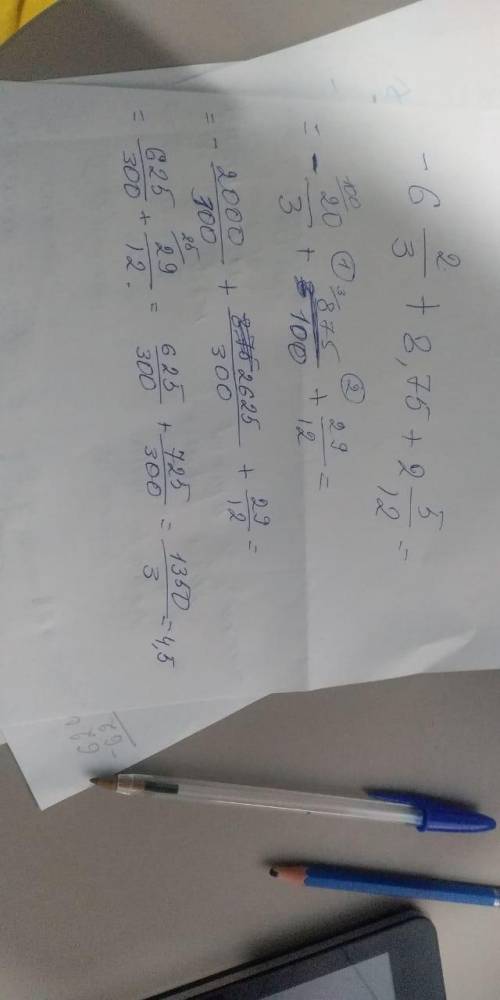 - 6 2/3 + 8,75 + 2 5/12 =
= - 20/3 + 875/100 + 29/12 =
= - 2000/300 + 2625/300 + 29/12 =
= 625/300 + 29/12 = 625/300 + 725/300 = 1350/3 = 4,5